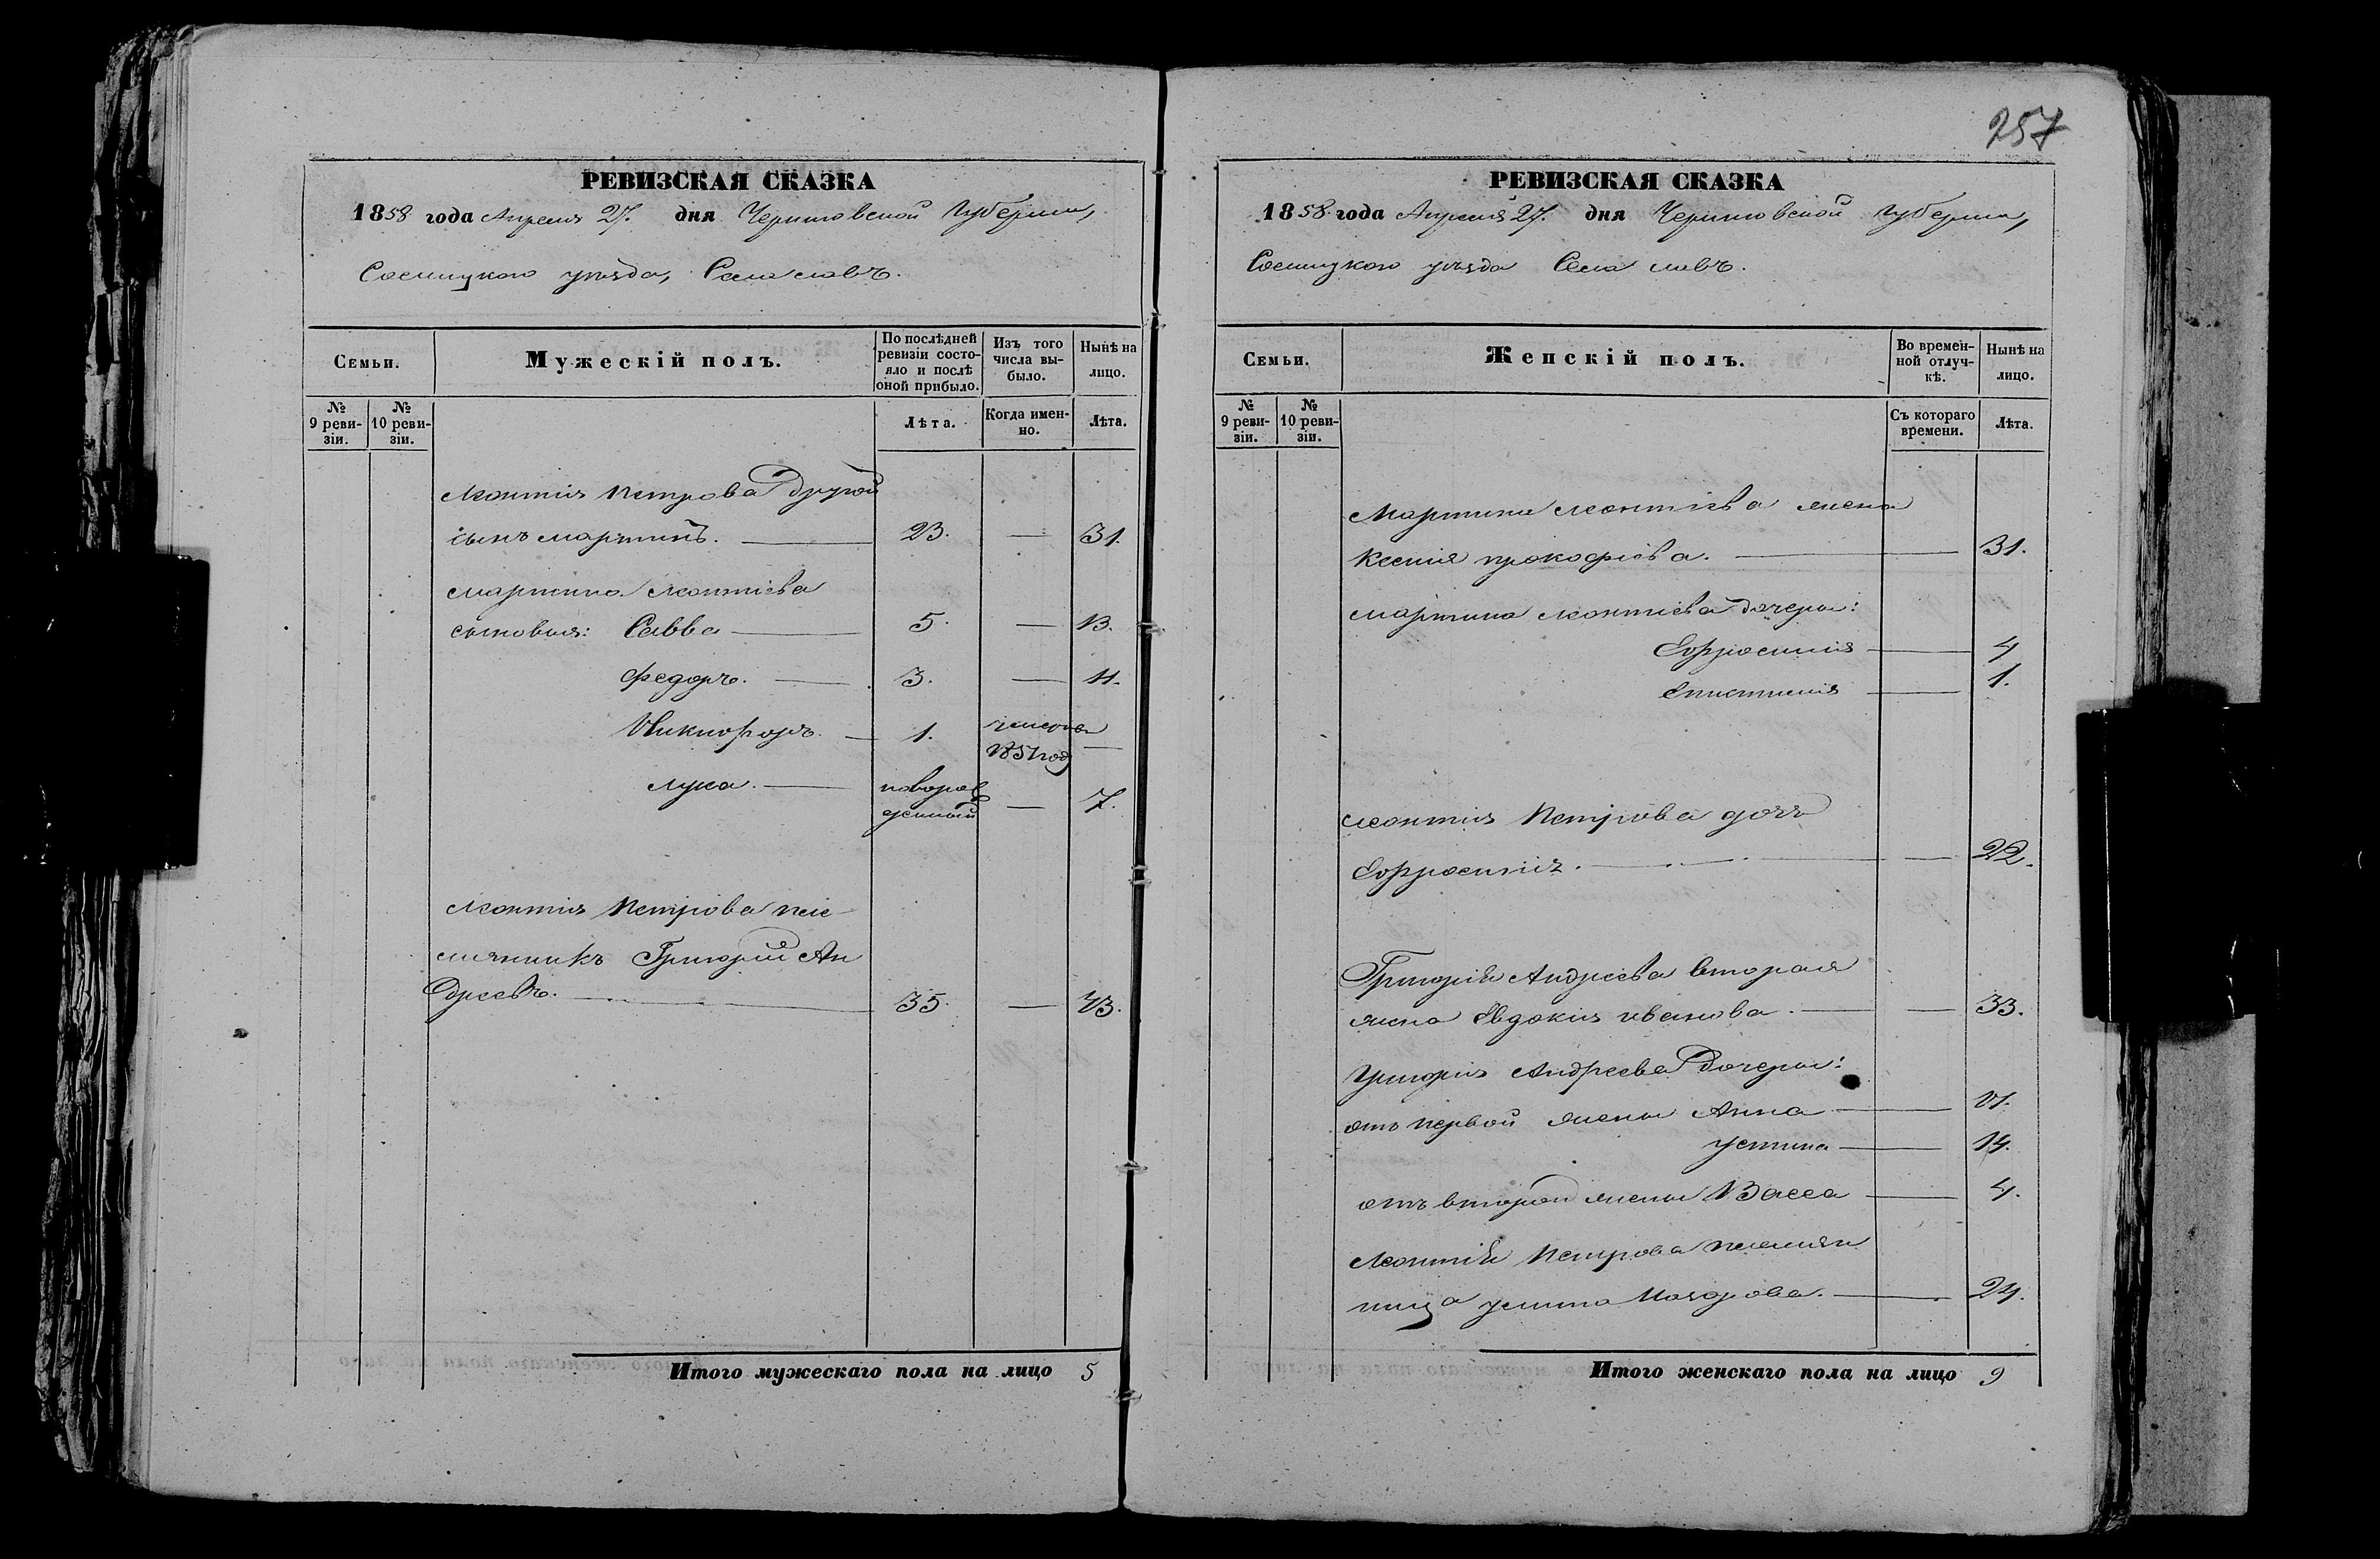 257
РЕВИЗСКАЯ СКАЗКА
1858 года Апреля 27. дня Черниговской Губернии,
Сосницкого уезда, Села
Семьи.
Мужескій полъ.
По послѣдней ревизіи состояло и послѣ оной прибыло.
Изъ того числа выбыло.
Нынѣ на лицо.
№ 9 ревизіи.
№ 10 ревизіи.
Лѣта.
Когда именно.
Лѣта.
Леонтія Петрова Другой
сынъ мартинъ. 23. — 31.
мартина Леонтіева
сыновья: Савва 5. — 13.
Федоръ. 3. — 11.
Никифоръ. 1. 1857 год —
лука. новорож
денный — 7.
Леонтія Петрова пле
мянникъ Григорій Ан
дреевъ. 35. — 43.
Итого мужескаго пола на лицо 5
РЕВИЗСКАЯ СКАЗКА
1858 года Апреля 27. дня Черниговской Губернии,
Сосницкого уѣзда Села
Семьи.
Женскій полъ.
Во временной отлучкѣ.
Нынѣ на лицо.
№ 9 ревизіи.
№ 10 ревизіи.
Съ котораго времени.
Лѣта.
Мартина Леонтіева жена
Ксенія прокофіева. — 31.
мартина леонтіева дочери:
Ефросинія — 4
Епистимія — 1.
Леонтія Петрова дочь
Ефросинія. — 22.
Григорія Андреева вторая
жена Евдокия иванова. — 33.
Григория Андреева Дочери:
отъ первой жены Анна
устина — 14.
отъ второй жены Васса — 4.
Леонтія Петрова племян
ница — 24.
Итого женскаго пола на лицо 9